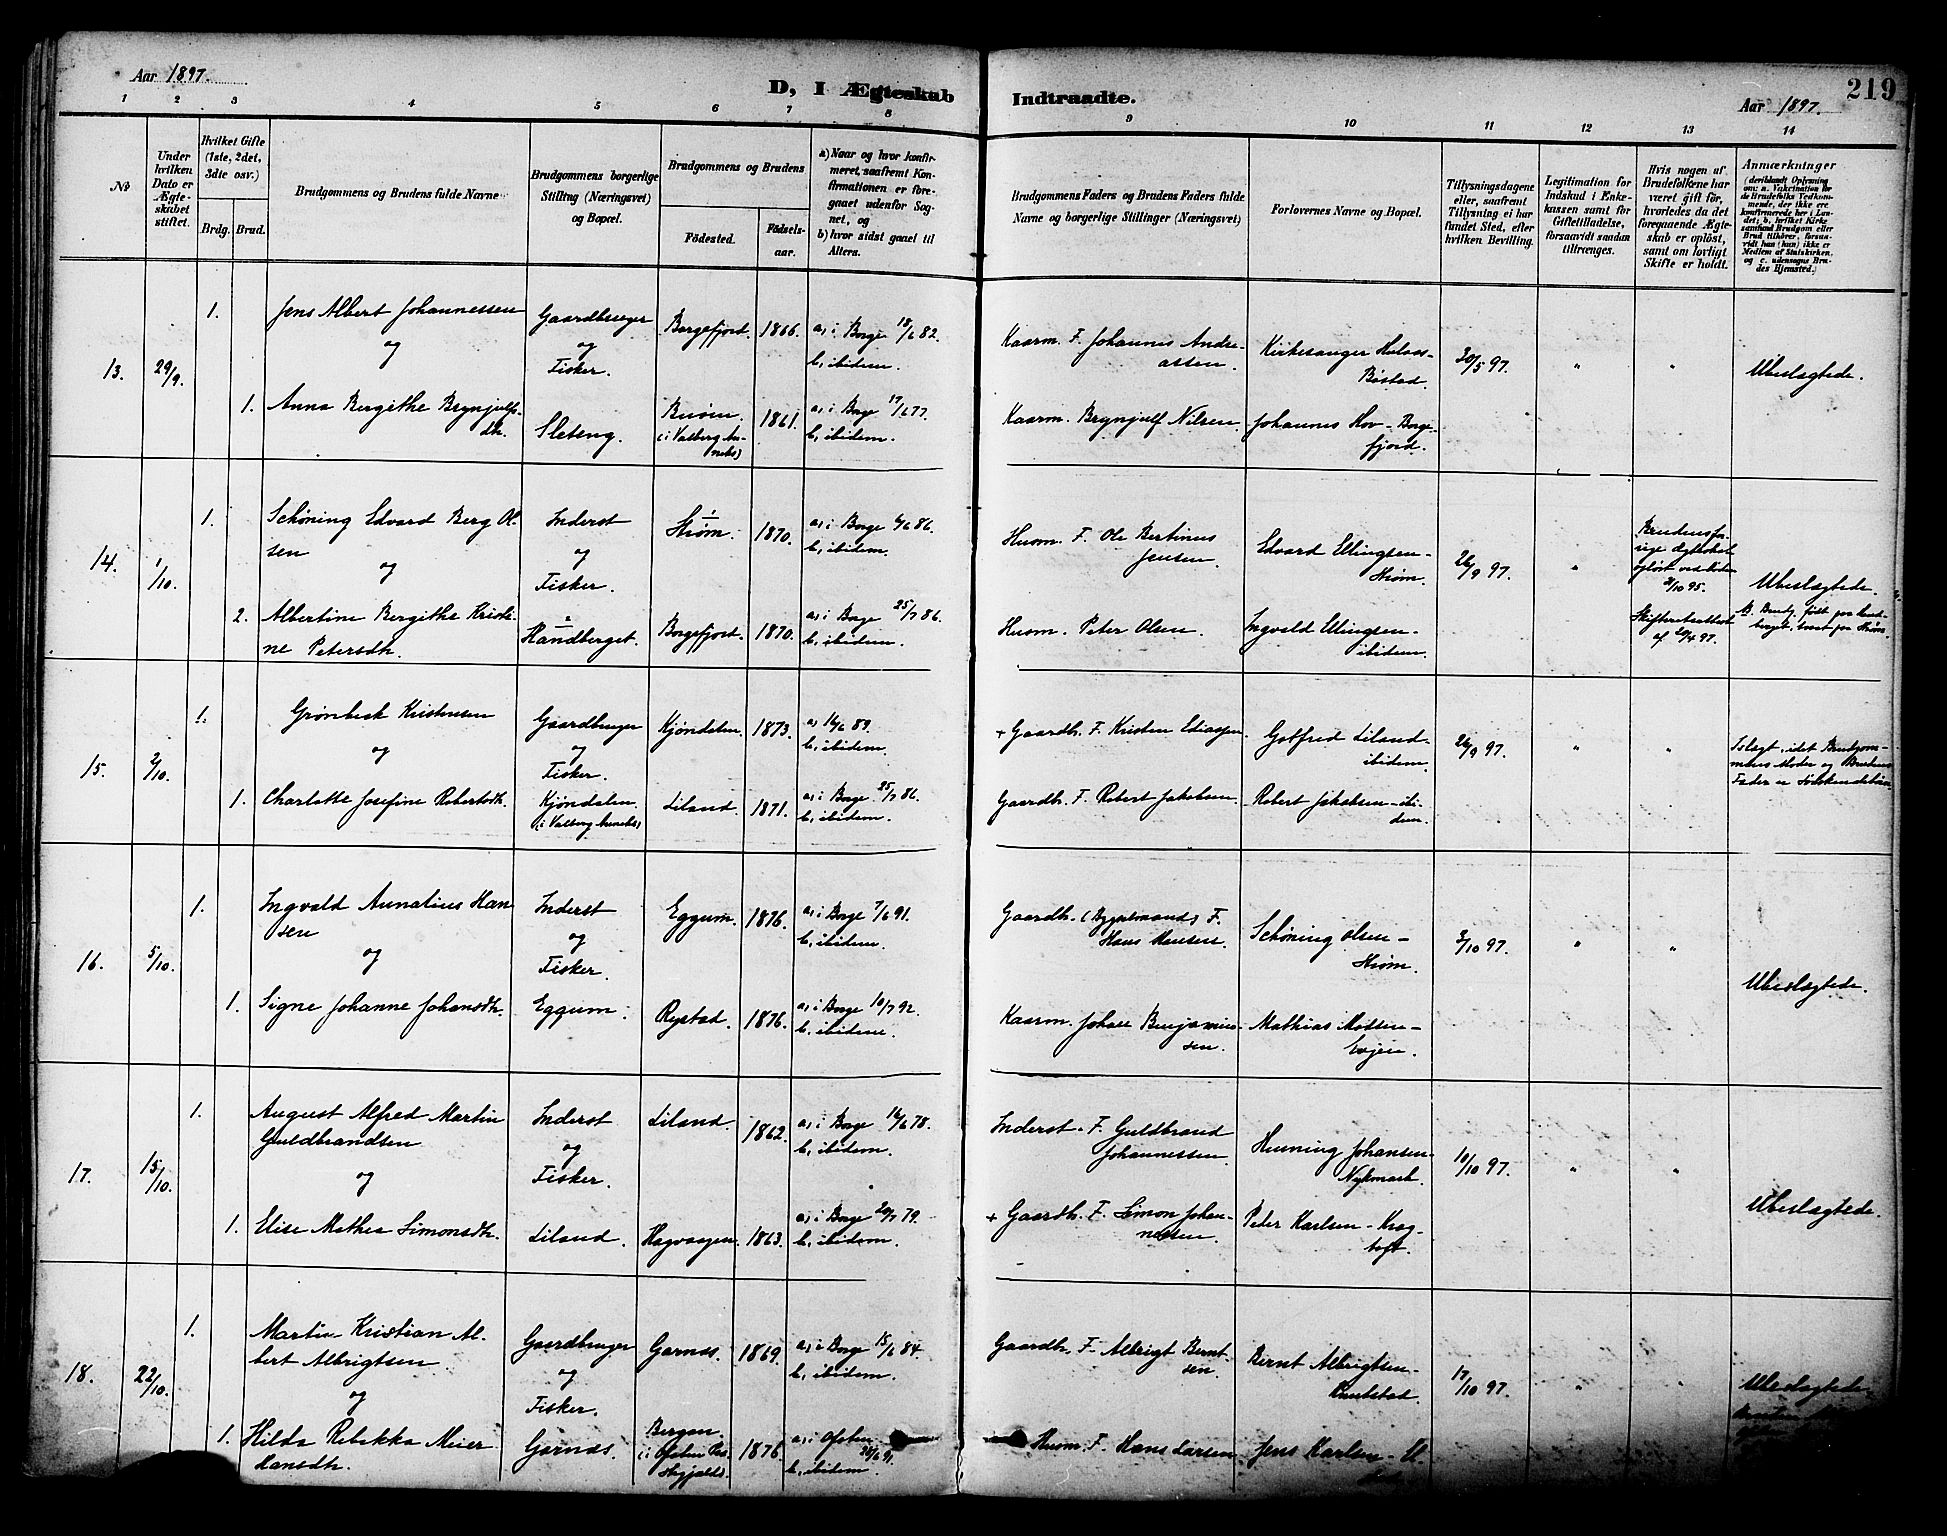 Aar 1897.
D, I Ægteskab Indtraadte.
219
Aar 1897.
1 2 3 4 5 6 7 8 9 10 11 12 13 14
No
Under hvilken Dato er Ægteskabet stiftet.
Hvilket Gifte (1ste, 2det, 3die osv.)
Brdg. Brud.
Brudgommens og Brudens fulde Navne
Brudgommens borgerlige Stilling (Næringsvei) og Bopæl.
Brudgommens og Brudens
Födested.
Födselsaar.
a) Naar og hvor konfirmeret, saafremt Konfirmationen er foregaaet udenfor Sognet, og
b) hvor sidst gaaet til Alters.
Brudgommens Faders og Brudens Faders fulde Navne og borgerlige Stillinger (Næringsvei)
Forlovernes Navne og Bopæl.
Tillysningsdagene eller, saafremt Tillysning ei har fundet Sted, efter hvilken Bevilling.
Legitimation for Indskud i Enkekassen samt for Giftetilladelse, forsaavidt saadan tiltrænges.
Hvis nogen af Brudefolkene har været gift för, hvorledes da det foregaaende Ægteskab er oplöst, samt om lovligt Skifte er holdt.
Anmærkninger (deriblandt Oplysning om: a. Vakcination for de Brudefolks Vedkommende, der ikke ere konfirmerede her i Landet; b. hvilket Kirkesamfund Brudgom eller Brud tilhörer, forsaavidt han (hun) ikke er Medlem af Statskirken, og c. udensogns Brudes Hjemsted.)
13. 29/9. 1. Jens Albert Johannessen
og
Gaardbruger
og
Fisker.
Borgefjord. 1866. a, i Borge 18/6 82.
b, ibidem.
Kaarm. F. Johannes Andreassen
Kirkesanger
Bøstad.
30/5 97. " " Ubeslægtede.
1. Anna Bergithe Brynjulfsdtr.
Sleteng.
(i Valberg Anneks)
1861. a, i Borge 17/6 77.
b, ibidem.
Kaarm. Brynjulf Nilsen
Johannes Hov - Borgefjord.
14. 1/10. 1. Schøning Edvard Berg Olsen
og
Inderst
og
Fisker.
1
1870. a, i Borge 6/6 86.
b, ibidem.
Husm. F. Ole Bertinus
Jensen.
Edvard Ellingsen -
26/9 97. "
Brudens forrige Ægteskab
opløst ved
/10 95.
Ubeslægtede.
2. Albertine Bergithe Kristine Petersdtr.
2
Handberget. Borgefjord. 1870. a, i Borge 25/7 86.
b, ibidem.
Husm. Peter Olsen.
Ingvald Ellingsen -
ibidem.
Skifteretsattest
af 20/4 97.
15. 2/10. 1. Grønbech Kristensen
og
Gaardbruger
og
Fisker.
Kjøndalen 1873. a, 16/6 89.
b, ibidem.
+ Gaardb. F. Kristen Ediassen
Gotfred Liland -
ibidem.
26/9 97. " "
I slægt, idet Brudgommens Moder og Brudens
Fader er Søskendebørn
1. Charlotte Josefine Robertsdtr.
Kjøndalen
(i Valberg Anneks)
Liland. 1871. a, i Borge 25/7 86.
b, ibidem.
Gaardb. F. Robert Jakobsen.
Robert Jakobsen - ibidem.
16. 5/10. 1. Ingvald Annatius Hansen
og
Inderst
og
Fisker.
Eggum. 1876. a, i Borge 7/6 91.
b, ibidem.
Gaardb. (Bygselmand) F.
Hans Hansen.
Schøning Olsen -
3/10 97. " " Ubeslægtede.
1. Signe Johanne Johansdtr.
Eggum. Rystad. 1876. a, i Borge 10/7 92.
b, ibidem.
Kaarm. Johan Benjaminsen.
Mathias Madsen -
Evjen.
17. 15/10. 1. August Alfred Martin
Guldbrandsen
og
Inderst
og
Fisker.
Liland. 1862. a, i Borge 16/6 78.
b, ibidem.
Inderst. F. Guldbrand
Johannessen.
Henning Johansen -
Nykmark.
10/10 97. " " Ubeslægtede.
1. Elise Mathea Simonsdtr.
Liland. Hagvaagen. 1863. a, i Borge 20/7 79.
b, ibidem.
+ Gaardb. F. Simon Johannessen.
Peter Karlsen -
18. 22/10. 1. Martin Kristian Albert Albrigtsen
og
Gaardbruger
og
Fisker.
Garnæs. 1869. a, i Borge 15/6 84.
b, ibidem.
Gaardb. F. Albrigt Berntsen.
Bernt Albrigtsen -
Knutstad.
17/10 97. " " Ubeslægtede
1. Hilda Rebekka Meier
Hansdtr.
Garnæs.
1876. a, i Ofoten 28/6 91.
b, ibidem.
Husm. F. Hans Larsen
Jens Karlsen -